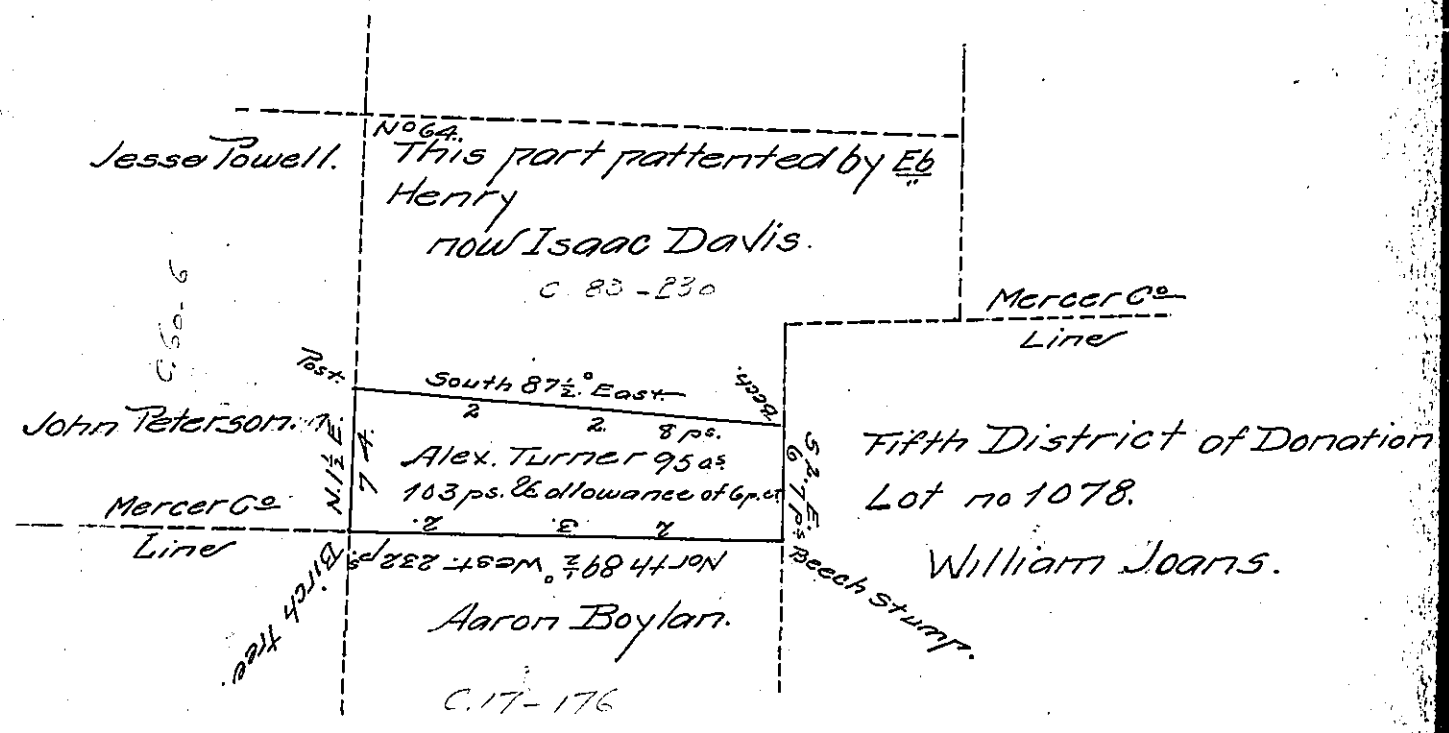 Jesse Powell.
No 64.
This part pattented by Eb
Henry
now Isaac Davis.
C. 83-230
C. 50-6
Mercer Co
Line
Post.
South 87½° East.
2 2. 8 ps.
Beech.
John Peterson.
N 1½ E.
Alex. Turner 95 as
103 ps. & allowance of 6 p. ct
S 2. E.
67 ps
Fifth District of Donation
Lot no 1078.
William Joans.
Mercer Co
Line
2. 3. 2
North 89½° West 232 ps
Birch tree.
Beech Stump.
Aaron Boylan.
C. 17-176